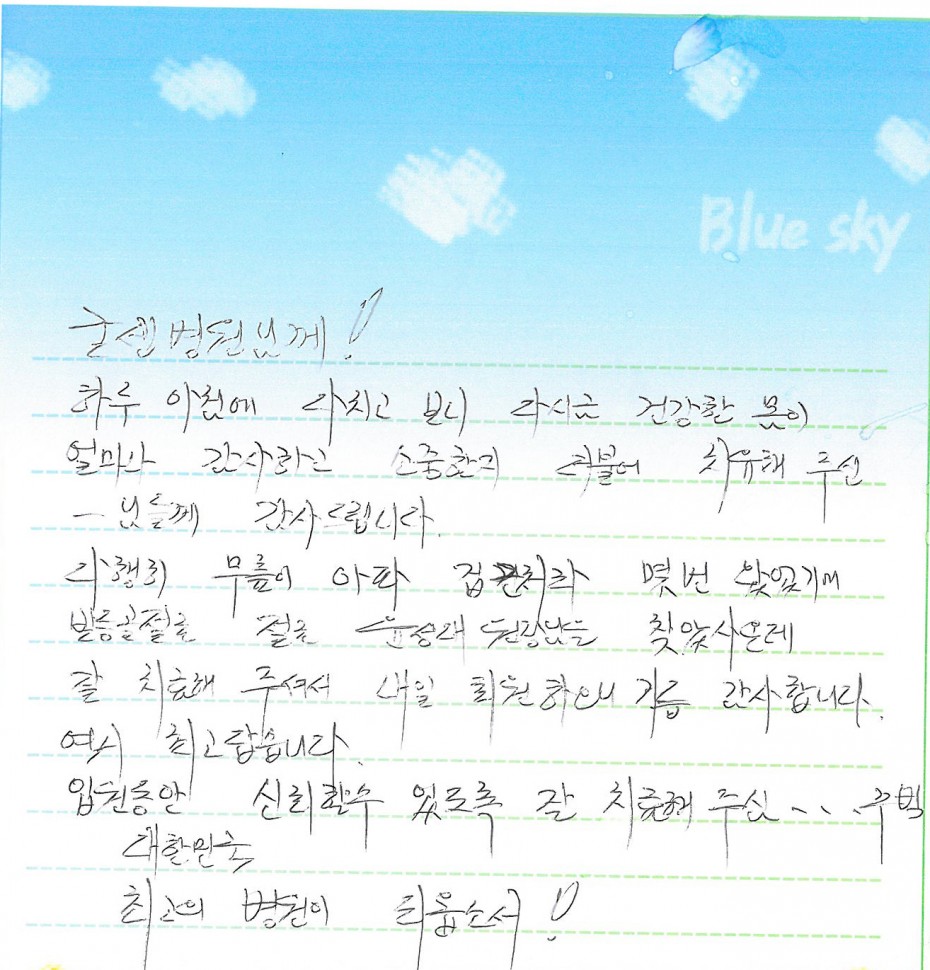 Blue sky
굳셈병원님께!
하루 아침에 다치고 보니 다시금 건강한 몸이
얼마나 감사하고 소중한지 더불어 치유해 주신
님들께 감사드립니다.
다행히 무릎이 아파 몇번 왔었기에
발등골절로 원장님을 찾았사온데
잘 치료해 주셔서 내일 퇴원하오니 거듭 감사합니다.
역시 최고답습니다.
입원동안 신뢰할수 있도록 잘 치료해 주심... 꾸벅
대한민국
최고의 병원이 되옵소서!